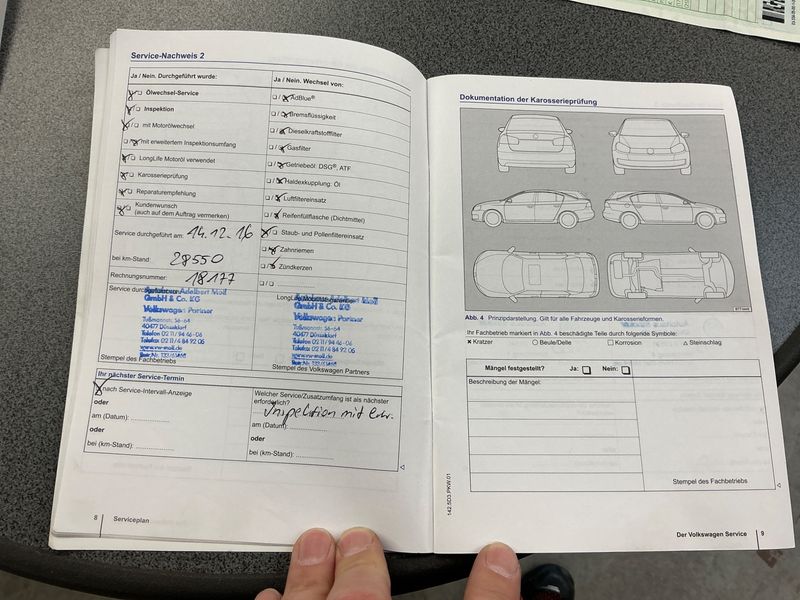 Service-Nachweis 2
Ja / Nein. Durchgeführt wurde:
Ölwechsel-Service
Inspektion
mit Motorölwechsel
mit erweitertem Inspektionsumfang
LongLife Motoröl verwendet
Karosserieprüfung
Reparaturempfehlung
Kundenwunsch
(auch auf dem Auftrag vermerken)
Service durchgeführt am: 14.12.16
bei km-Stand: 28550
Rechnungsnummer: 18177
Service
Adelbert Moll
GmbH & Co. KG
Volkswagen Partner
40477 Düsseldorf
Telefon 02 11 / 9 46 46-06
Telefax 02 11 / 4 84 92 06
www.vw-moll.de
Stempel des Fachbetriebs
Ja / Nein. Wechsel von:
AdBlue®
Bremsflüssigkeit
Dieselkraftstofffilter
Gasfilter
Getriebeöl: DSG®, ATF
Haldexkupplung: Öl
Luftfiltereinsatz
Reifenfüllflasche (Dichtmittel)
Staub- und Pollenfiltereinsatz
Zahnriemen
Zündkerzen
GmbH & Co. KG
Volkswagen Partner
40477 Düsseldorf
www.vw-moll.de
Stempel des Volkswagen Partners
Ihr nächster Service-Termin
nach Service-Intervall-Anzeige
oder
am (Datum):
oder
bei (km-Stand):
Welcher Service/Zusatzumfang ist als nächster
erforderlich?
Inspektion mit erw.
am (Datum):
oder
bei (km-Stand):
8 Serviceplan
Dokumentation der Karosserieprüfung
Abb. 4 Prinzipdarstellung. Gilt für alle Fahrzeuge und Karosserieformen.
Ihr Fachbetrieb markiert in Abb. 4 beschädigte Teile durch folgende Symbole:
× Kratzer ○ Beule/Delle □ Korrosion △ Steinschlag
Mängel festgestellt? Ja: Nein:
Beschreibung der Mängel:
Stempel des Fachbetriebs
142.5D3.PKW.01
Der Volkswagen Service 9